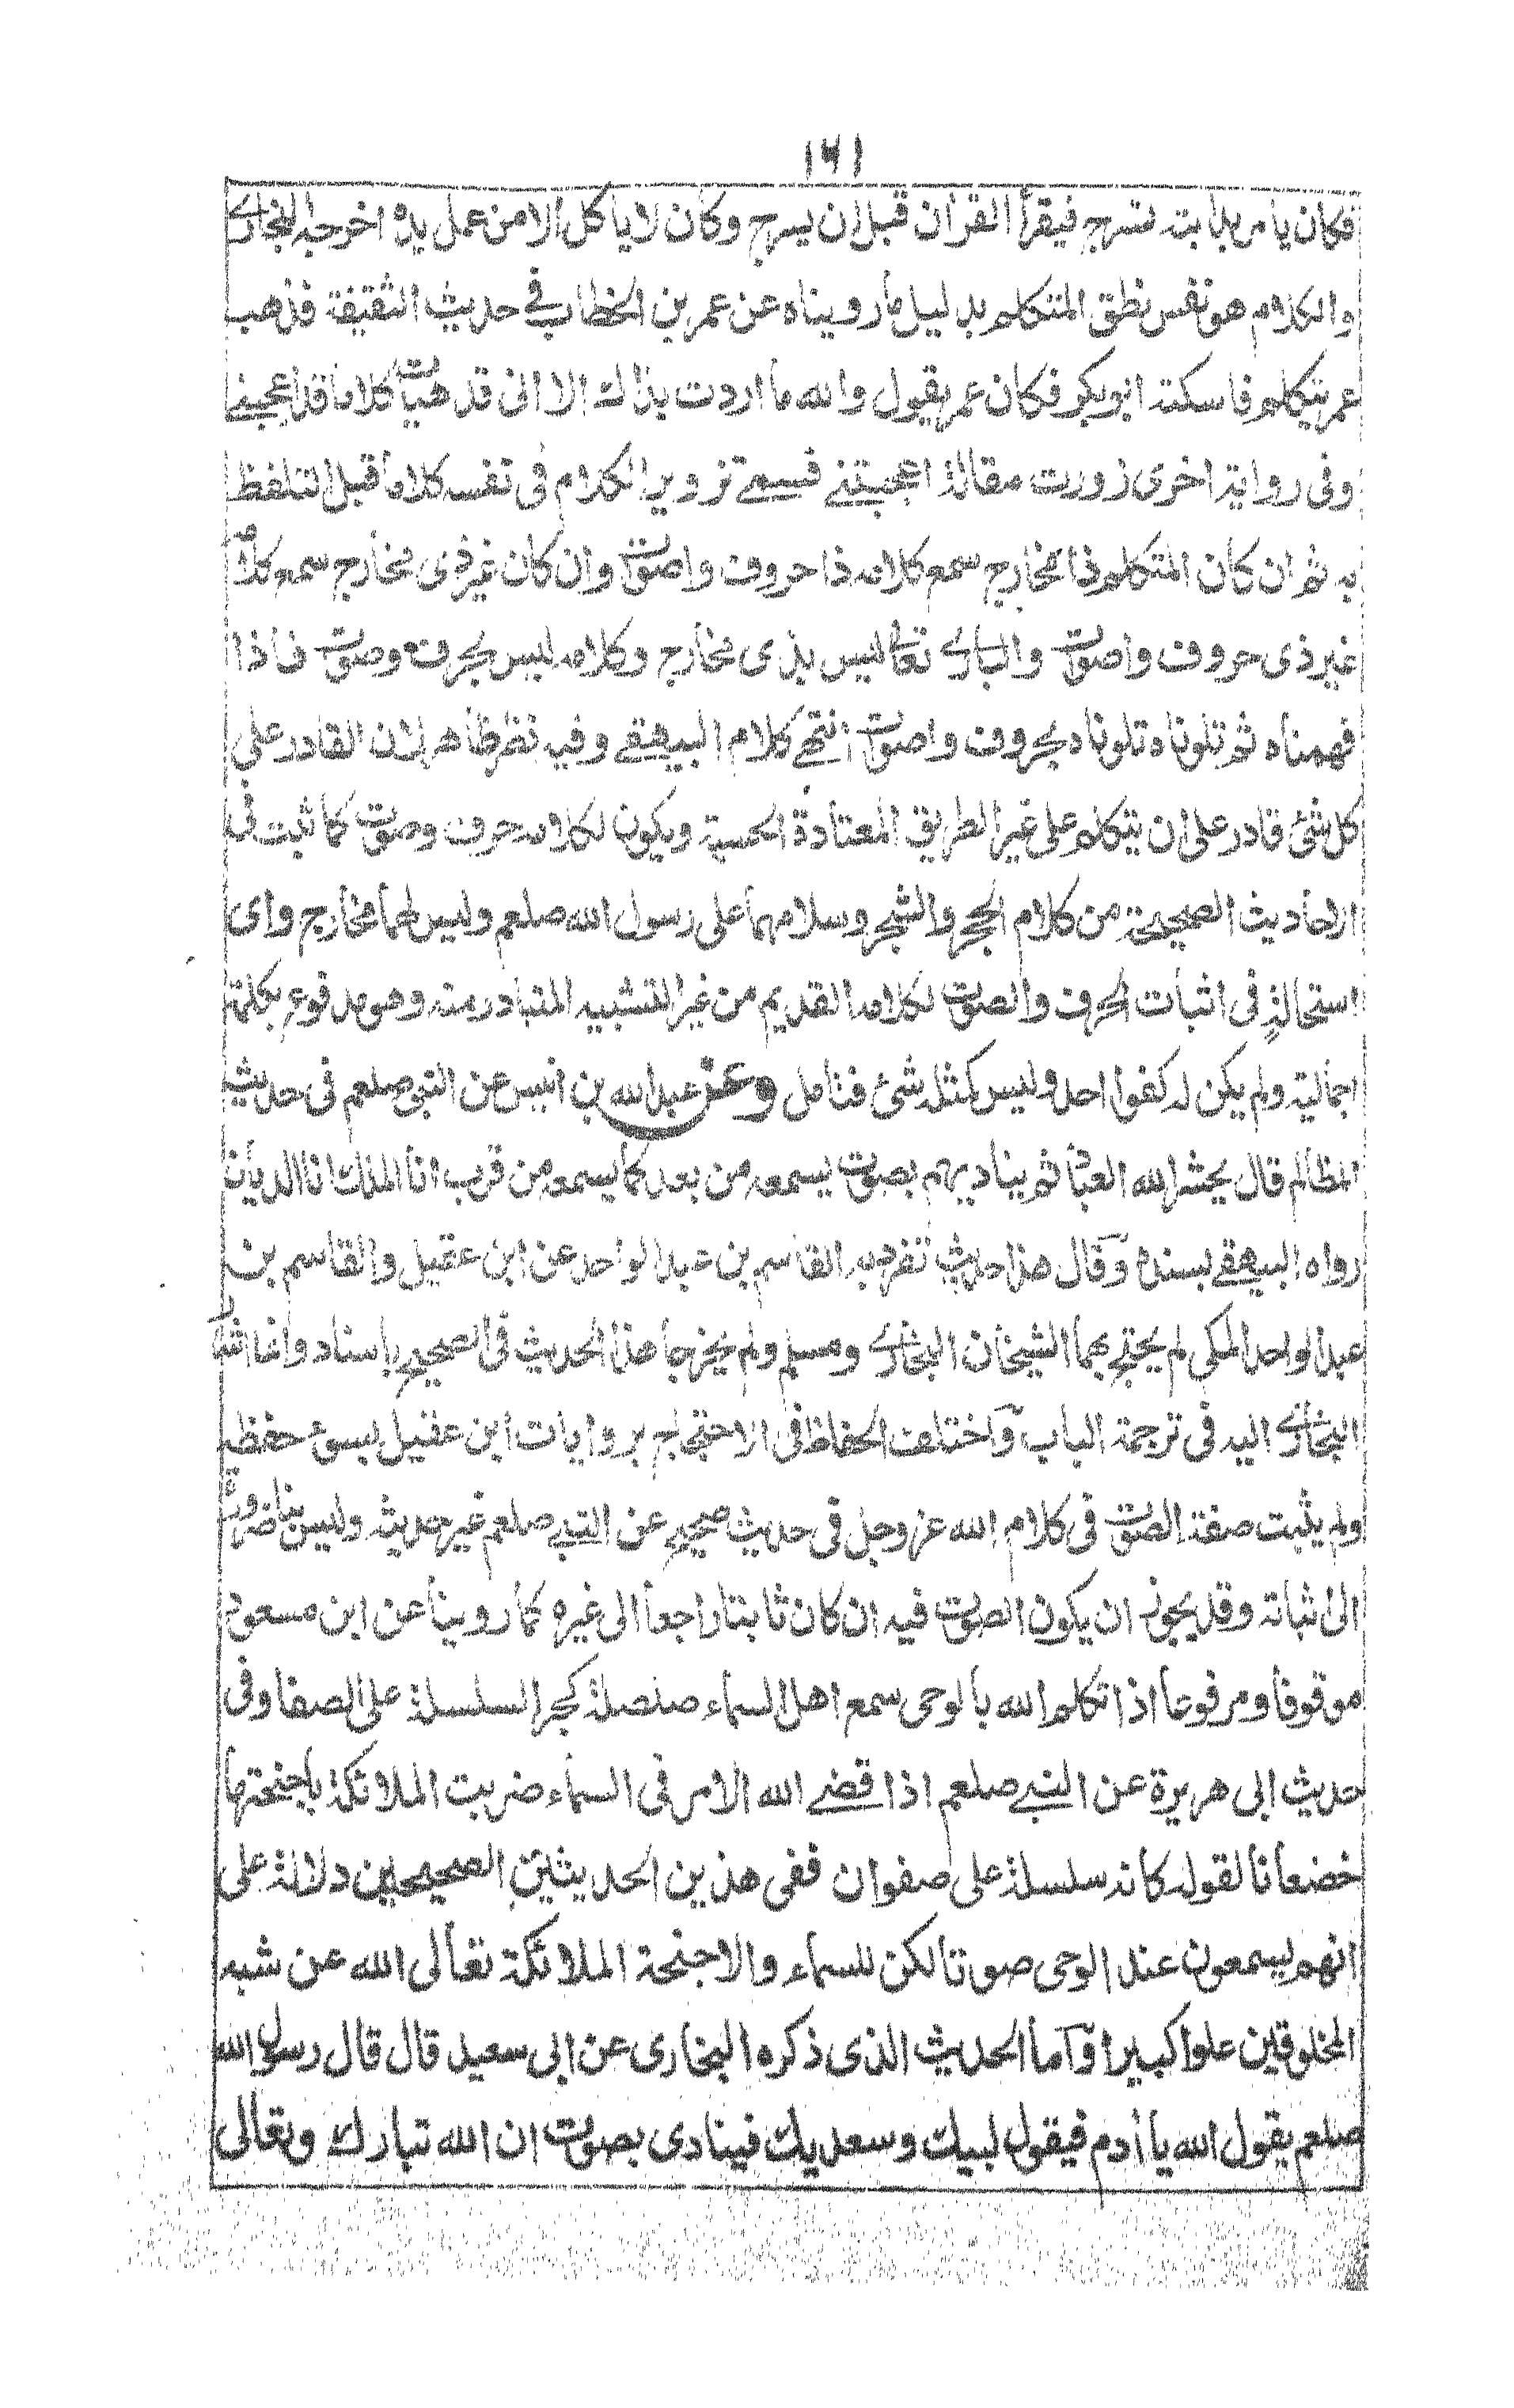 ١٦١
فكان يأمر بدابته تسرج فيقرأ القرأن قبل ان يسرج وكان لا يأكل الا من عمل يده اخرجه البخاري
والكلام هو نفس نطق المتكلم بدليل ما رويناه عن عمر بن الخطاب في حديث الثقيفة فذهب
عمر يتكلم فاسكته ابو بكر فكان عمر يقول والله ما اردت بذاك الا انى قد هيأت كلاما قد اعجبنى
وفى رواية اخرى زورت مقالة اعجبتنى فسمى تزوير الكلام فى نفسه كلاما قبل التلفظ
به ثم ان كان المتكلم ذا مخارج سمع كلامه ذا حروف واصوات وان كان غير ذى مخارج سمع كلامه
غير ذى حروف واصوات والبارى تعالى ليس بذى مخارج وكلامه ليس بحرف وصوت فأذا
فهمناه ثم تلوناه تلوناه بحروف واصوات انتهى كلام البيهقى وفيه نظر ظاهر لان القادر على
كل شئ قادر على ان يتكلم على غير الطريق المعتادة الحسية ويكون لكلامه حرف وصوت كما ثبت فى
الاحاديث الصحيحة من كلام الحجر والشجر وسلامهما على رسول الله صلعم وليس لهما مخارج واى
استحالة فى اثبات الحرف والصوت لكلامه القديم من غير التشبيه المتبادر منه وهو مدفوع بكلمة
اجمالية ولم يكن له كفوا احد وليس كمثله شئ فتامل وعن عبد الله بن انيس عن النبى صلعم فى حديث
المظالم قال يحشر الله العباد ثم يناديهم بصوت يسمعه من بعد كما يسمعه من قرب انا الملك انا الديان
رواه البيهقى بسنده وقال هذا حديث تفرد به القاسم بن عبد الواحد عن ابن عقيل والقاسم بن
عبد الواحد المكى لم يحتج بهما الشيخان البخارى ومسلم ولم يخرجا هذا الحديث فى الصحيح باسناد وانما اشار
البخارى اليه فى ترجمة الباب واختلف الحفاظ فى الاحتجاج بروايات ابن عقيل لسوء حفظه
ولم يثبت صفة الصوت فى كلام الله عز وجل فى حديث صحيح عن النبى صلعم غير حديثه وليس بنا ضرورة
الى اثباته وقد يجوز ان يكون الصوت فيه ان كان ثابتا راجعا الى غيره كما روينا عن ابن مسعود
موقوفا ومرفوعا اذا تكلم الله بالوحى سمع اهل السماء صلصلة كجر السلسلة على الصفا وفى
حديث ابى هريرة عن النبى صلعم اذا قضى الله الامر فى السماء ضربت الملائكة باجنحتها
خضعانا لقوله كانه سلسلة على صفوان ففى هذين الحديثين الصحيحين دلالة على
انهم يسمعون عند الوحى صوتا لكن للسماء والاجنحة الملائكة تعالى الله عن شبه
المخلوقين علوا كبيرا وأما الحديث الذى ذكره البخارى عن ابى سعيد قال قال رسول الله
صلعم يقول الله يا أدم فيقول لبيك وسعديك فينادى بصوت ان الله تبارك وتعالى